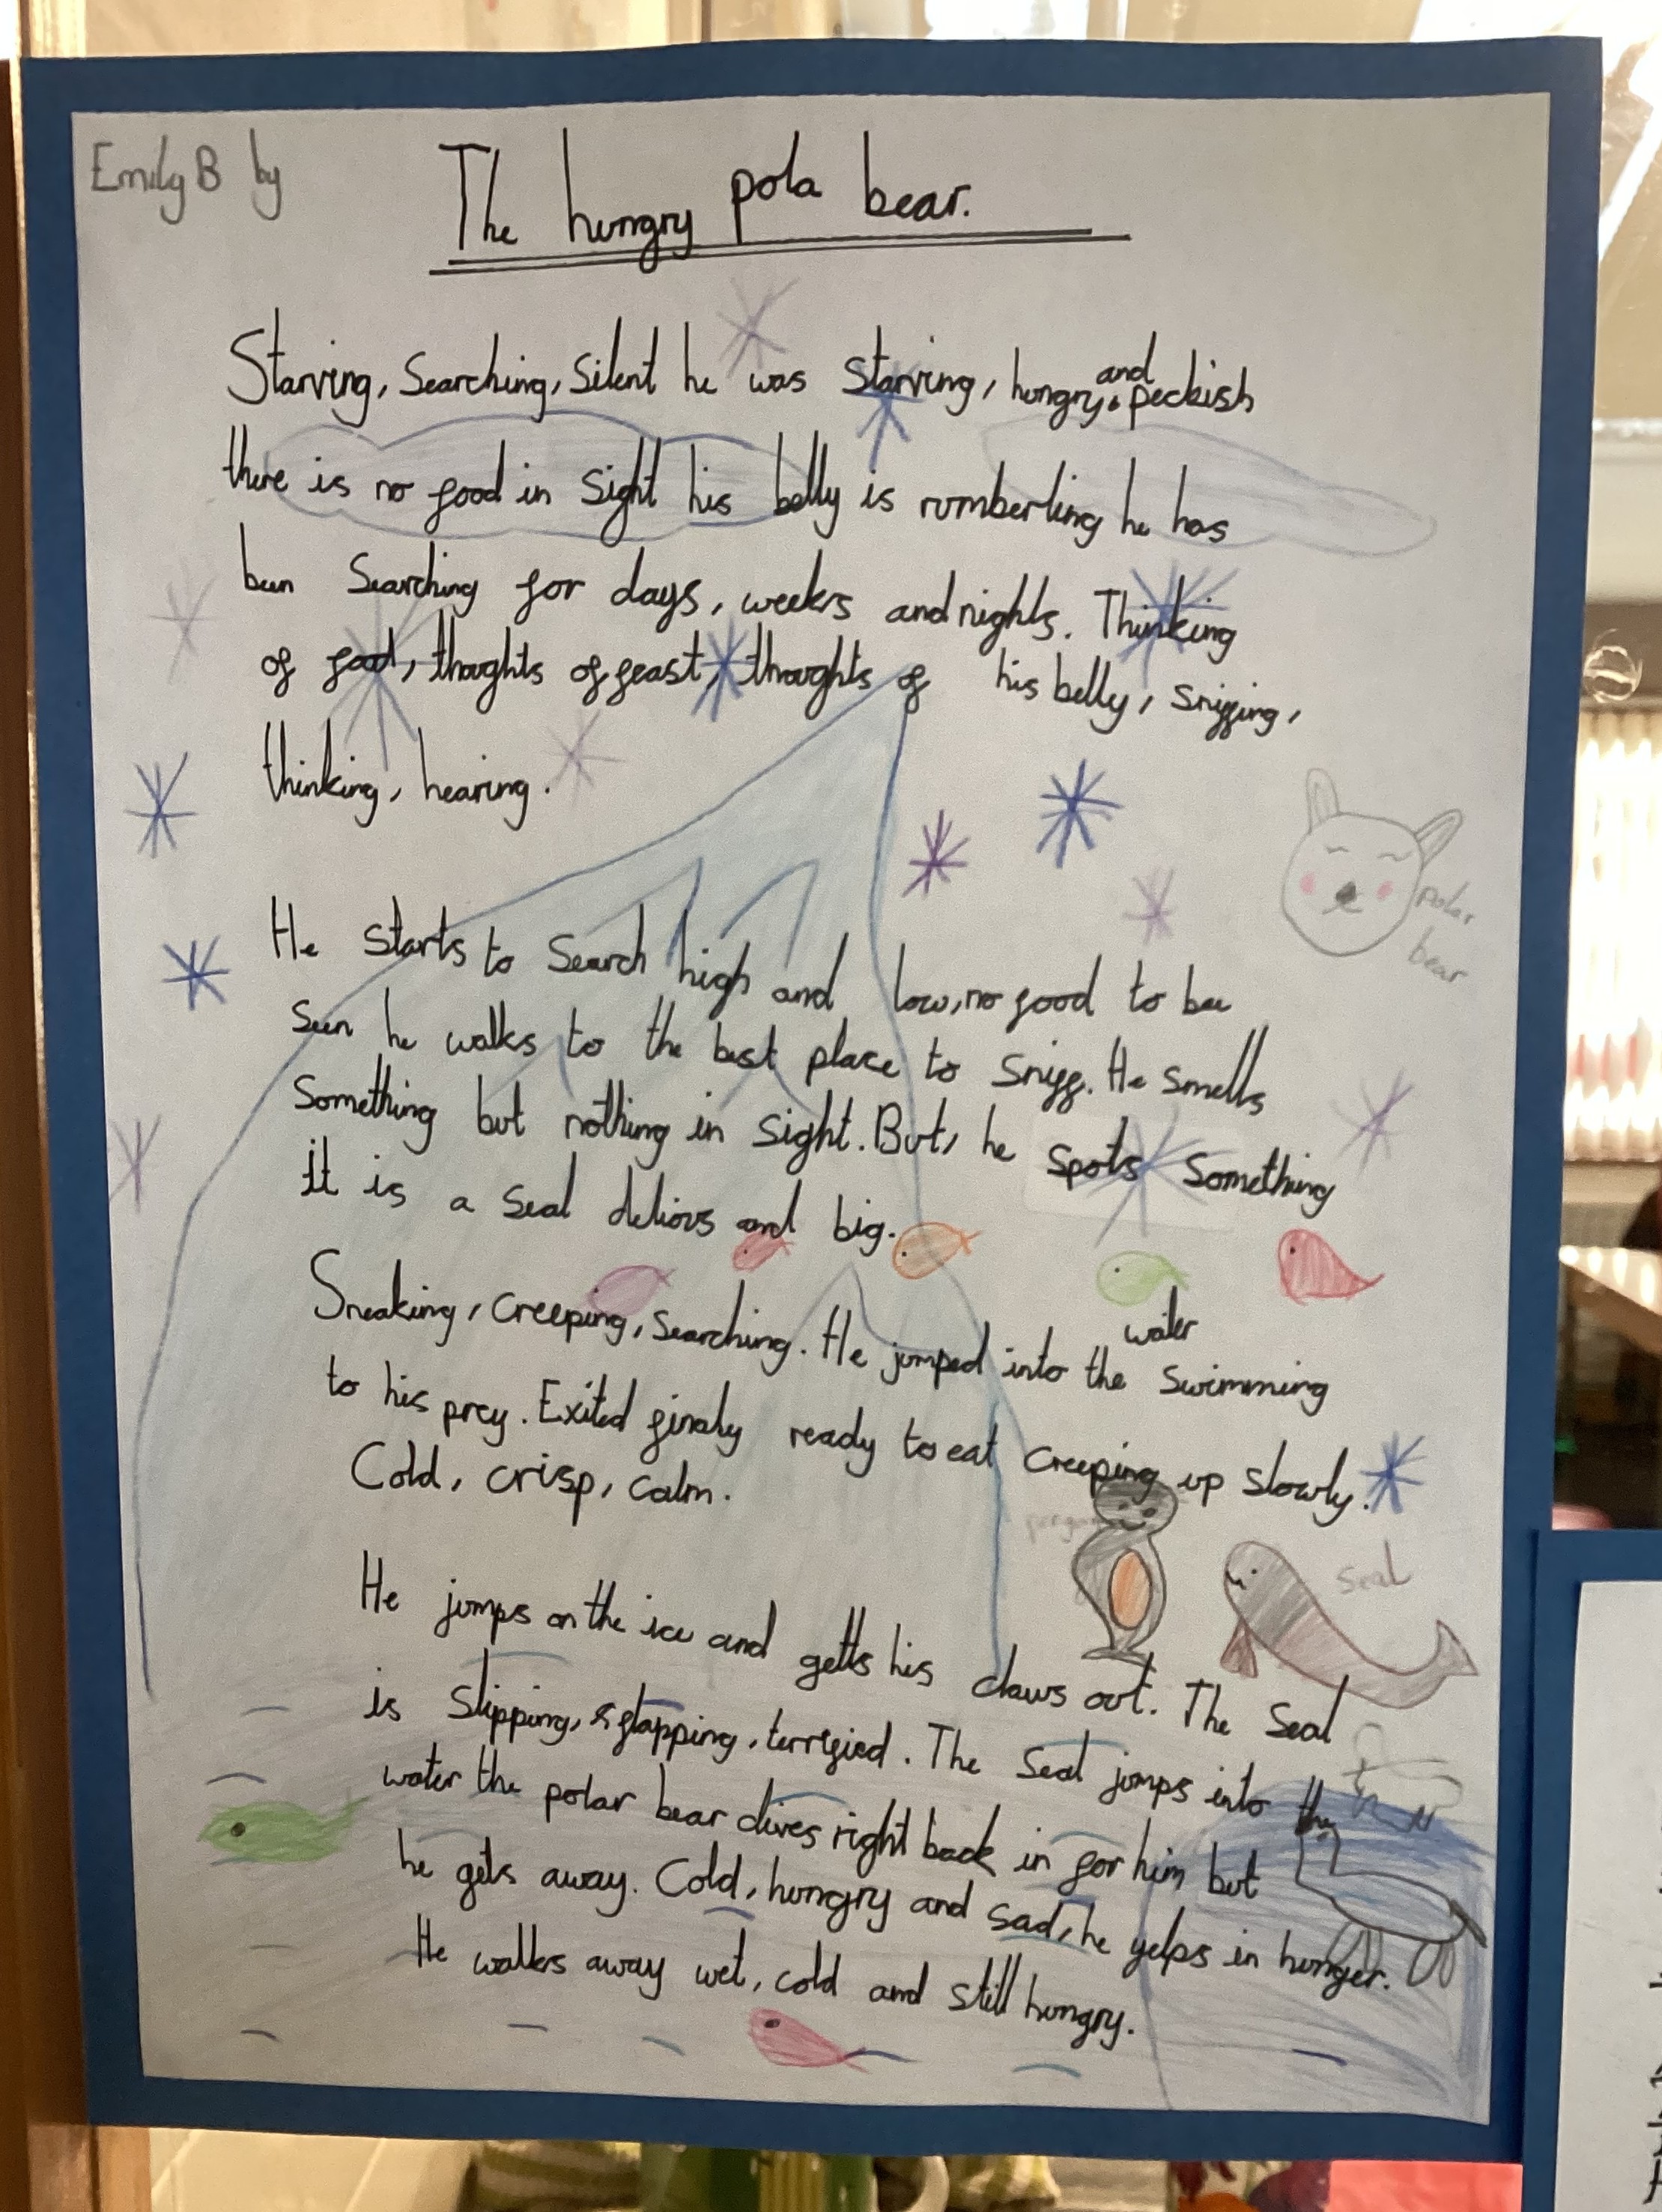 Emily B by
The hungry pola bear.
Starving, Searching, Silent he was starving, hungry and peckish
there is no food in sight his belly is rumberling he has
been Searching for days, weeks and nights. Thinking
of food, thoughts of feast, thoughts of his belly, sniffing,
thinking, hearing.
polar
bear
He starts to Search high and low, no food to bee
Seen he walks to the best place to sniff. He smells
Something but nothing in sight. But, he spots something
it is a seal delious and big.
Sneaking, creeping, searching. He jumped into the water swimming
to his prey. Exited finaly ready to eat creeping up slowly.
Cold, crisp, calm.
seal
He jumps on the ice and getts his claws out. The seal
is slipping, flapping, terrified. The seal jumps into the
water the polar bear dives right back in for him but
he gets away. Cold, hungry and sad, he yelps in hunger.
He walks away wet, cold and still hungry.